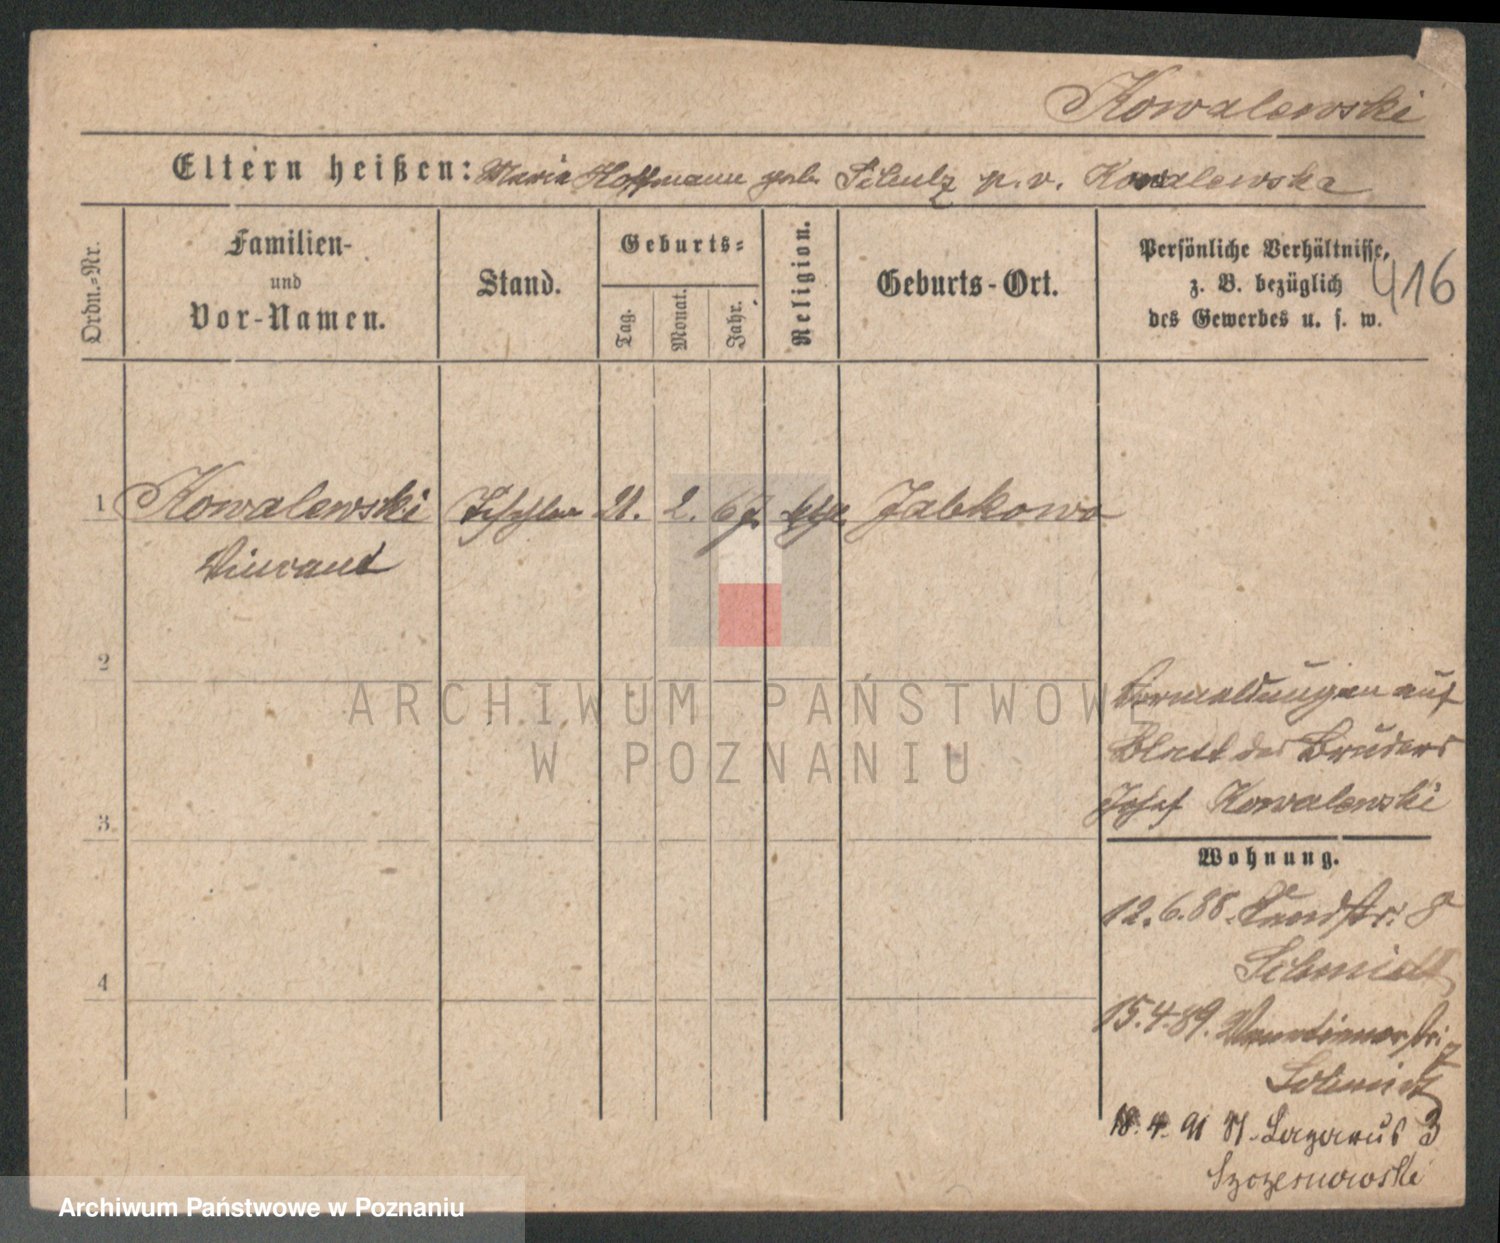 Kowalewski
Eltern heißen: Maria Hoffmann geb. Schulz p. v. Kowalewska
Ordn.-Nr.
Familien-
und
Vor-Namen.
Stand.
Geburts-
Tag.
Monat.
Jahr.
Religion.
Geburts-Ort.
Persönliche Verhältnisse,
z. B. bezüglich
des Gewerbes u. s. w.
416
1 Kowalewski Tischler 21. 2. 67. kth. Jabkowo
Vincent
2
3
4
Vermeldungen auf
Blatt des Bruders
Josef Kowalewski
Wohnung.
12. 6. 88. Sandstr. 8
Schmidt
15. 4. 89.
Schmidt
18. 4. 91 St. Lazarus 3
Szczesnowski
ARCHIWUM PAŃSTWOWE
W POZNANIU
Archiwum Państwowe w Poznaniu